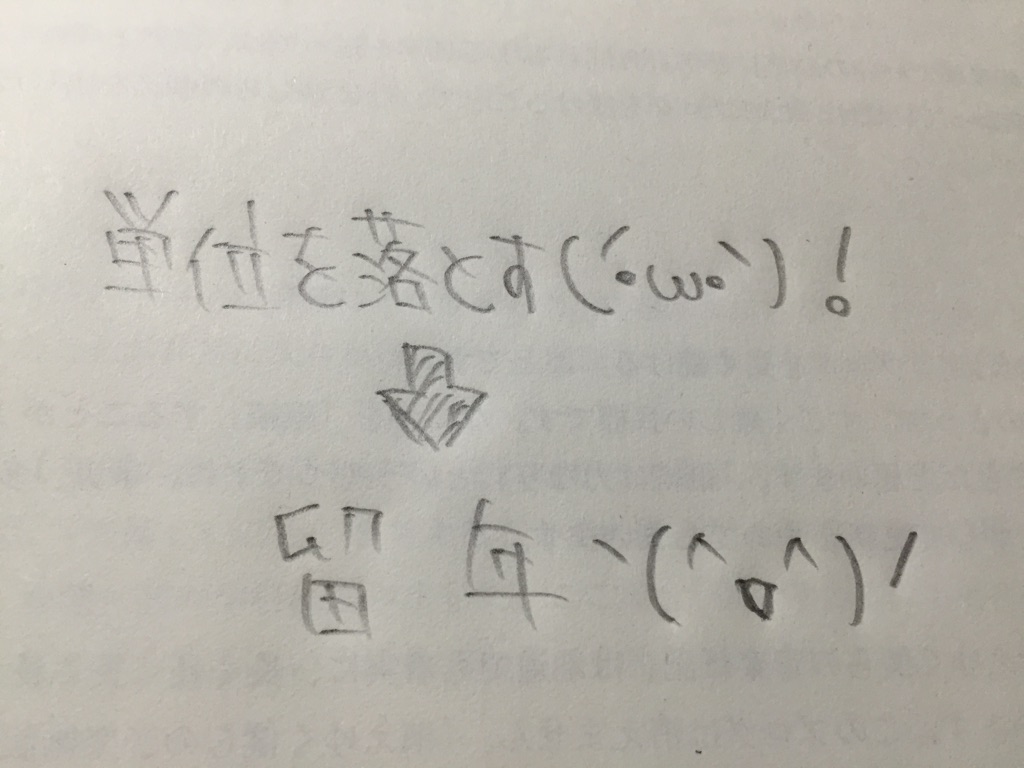 単位を落とす(´・ω・`)!
留年ヽ(^o^)ノ